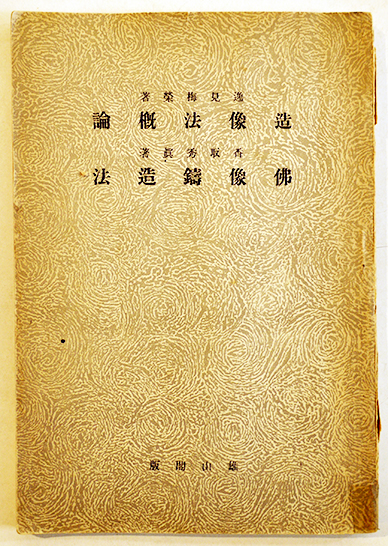 逸見梅榮著
造像法概論
香取秀眞著
佛像鑄造法
雄山閣版